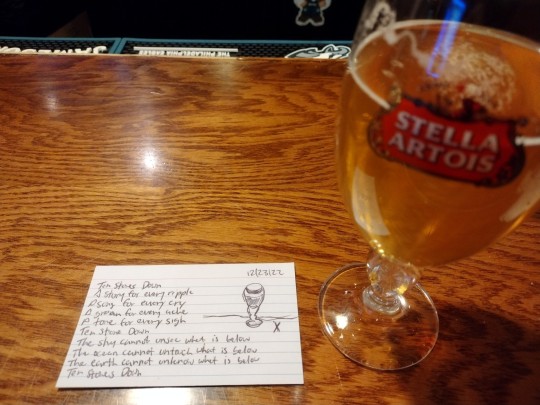 THE PHILADELPHIA EAGLES
STELLA
ARTOIS
12/23/22
Ten Stones Down
A story for every ripple
A song for every cry
A groan for every ache
A tone for every sigh
Ten Stone Down
The sky cannot unsee what is below
The ocean cannot unteach what is below
The earth cannot unknow what is below
Ten Stones Down
X